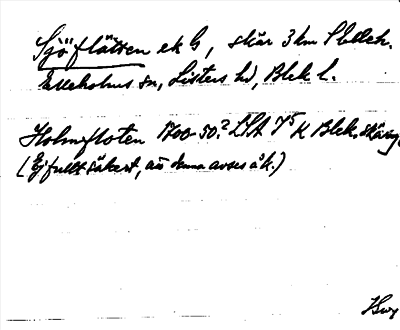 Sjöflåtten ek G, skär 3 km S Elleh.
Elleholms sn, Listers hd, Blek l.
Holmfloten 1700-50? LSA T5 K Blek. skärg.
(Ej fullt säkert, att denna avses å k.)